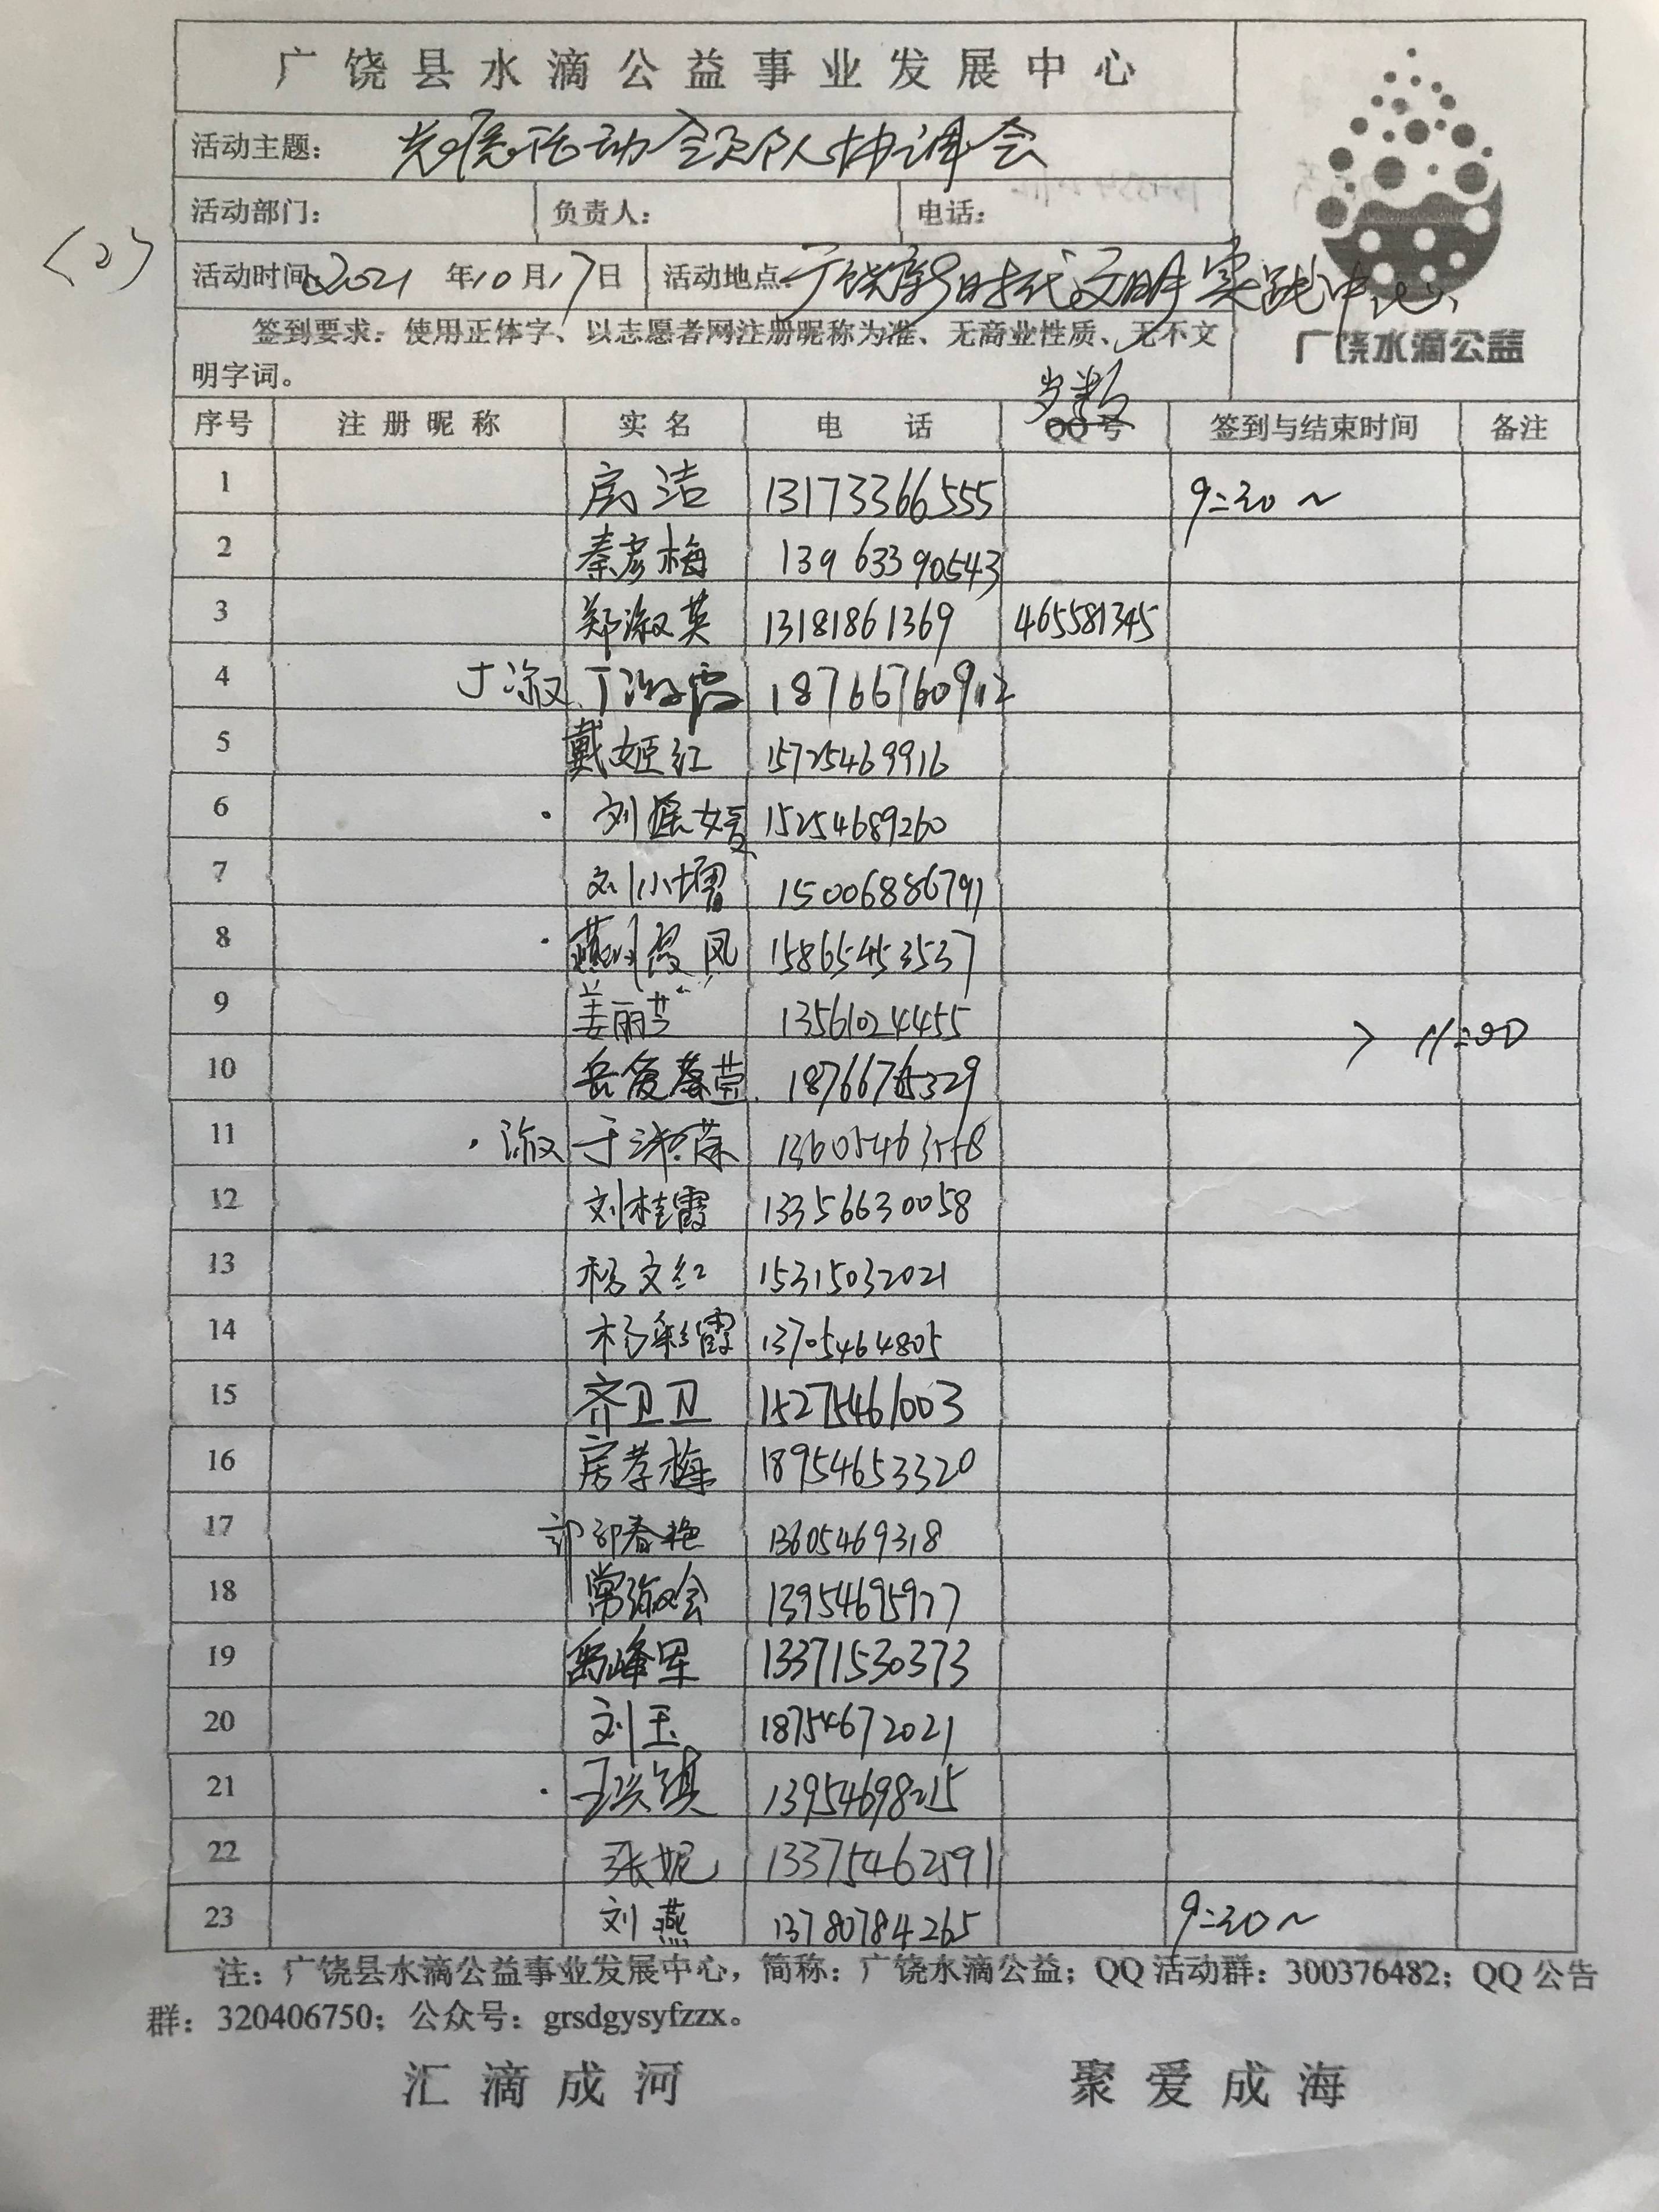 广饶县水滴公益事业发展中心
活动主题： 关爱活动会领队协调会
活动部门： 负责人： 电话：
(2)
活动时间：2021 年10月17日 活动地点：广饶新时代文明实践中心
签到要求：使用正体字、以志愿者网注册昵称为准、无商业性质、无不文
明字词。
广饶水滴公益
岁数
序号 注册昵称 实名 电话 QQ号 签到与结束时间 备注
1 房洁 13173366555 9:30~
2 秦彦梅 13963390543
3 郑淑英 13181861369 465581345
4 丁淑 丁淑霞 18766760912
5 戴姬红 15725469916
6 刘媛 15254689260
7 刘小增 15006886791
8 燕 凤 15865453537
9 姜丽芸 13561024455 > 11:00
10 岳 18766765329
11 淑 于 荣
12 刘桂霞 13356630058
13 杨文红 15315032021
14 杨彩霞 13705464805
15 齐卫卫 15275461003
16 房孝梅 18954653320
17 郭春艳 13605469318
18 常淑会 13954695977
19 峰军 13371530373
20 刘玉 18754672021
21 王兴镇 13954698215
22 张妮 13375462591
23 刘燕 13780784265 9:30~
注：广饶县水滴公益事业发展中心，简称：广饶水滴公益；QQ 活动群：300376482；QQ 公告
群：320406750；公众号：grsdgysyfzzx。
汇滴成河 聚爱成海